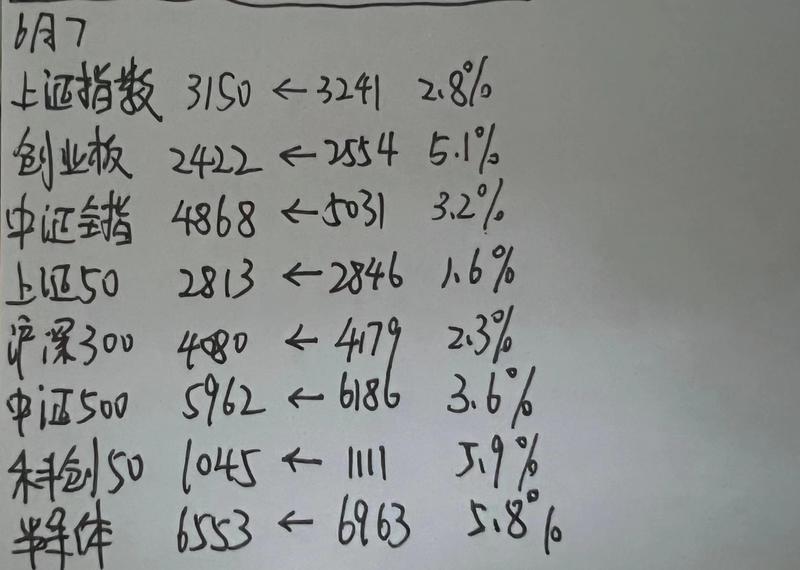 6月7
上证指数 3150 ← 3241 2.8%
创业板 2422 ← 2554 5.1%
中证全指 4868 ← 5031 3.2%
上证50 2813 ← 2846 1.6%
沪深300 4080 ← 4179 2.3%
中证500 5962 ← 6186 3.6%
科创50 1045 ← 1111 5.9%
半导体 6553 ← 6963 5.8%